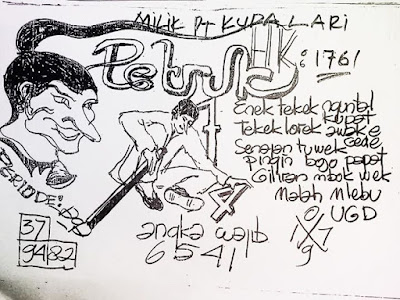 MILIK Pt KUDA LARI
Petruk HK: 1761
Enek tekek nguntal
kupat
Tekek lorek awake
gede
Senajan tuwek
pingin bojo papat
Giliran mbok wek
Malah Mlebu
UGD
PERIODE:
4
37
94 82
angka wajib
6 5 4 1
0
1 7
9